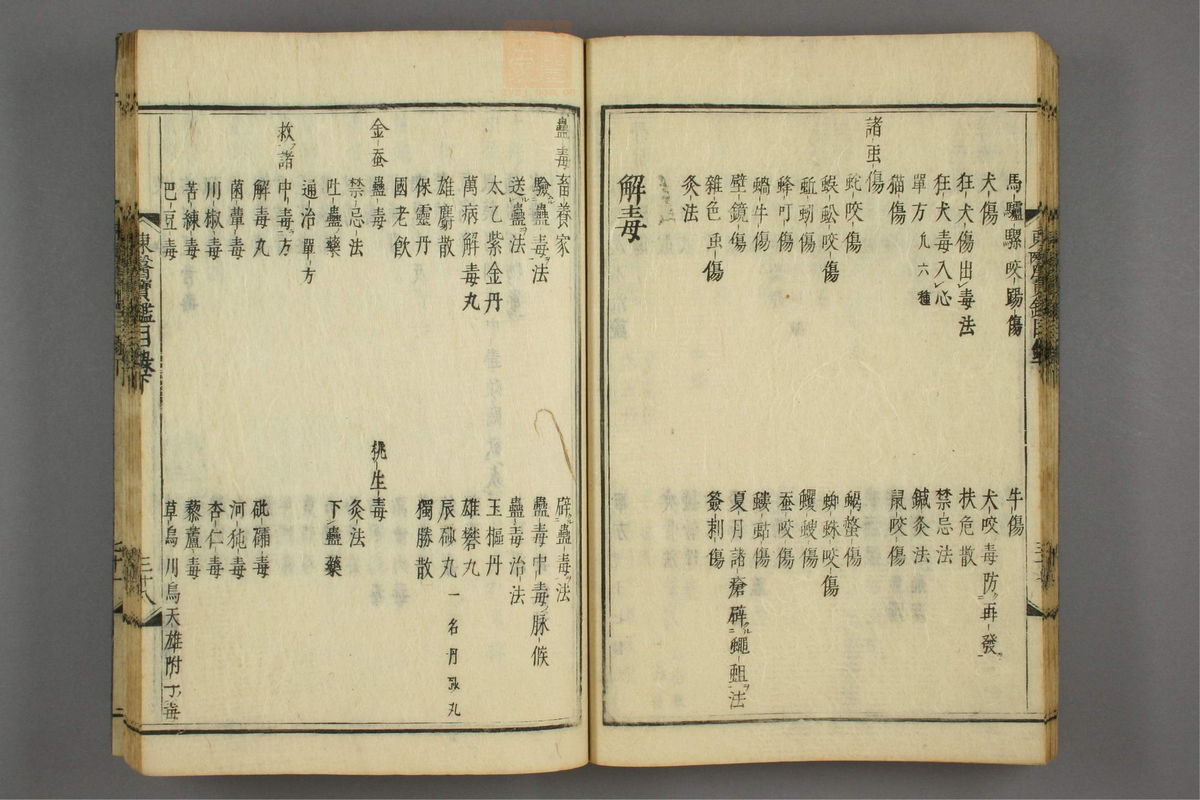 馬驢騾咬踢傷
牛傷
犬傷
犬咬毒防再發
狂犬傷出毒法
扶危散
狂犬毒入心
禁忌法
單方 凡六種
鍼灸法
猫傷
鼠咬傷
諸虫傷
蛇咬傷
蝎螫傷
蜈蚣咬傷
蜘蛛咬傷
蚯蚓傷
蠼螋傷
蜂叮傷
蚕咬傷
蝸牛傷
螻蛄傷
壁鏡傷
夏月諸瘡辟蠅蛆法
雜色虫傷
簽刺傷
灸法
解毒
蠱毒畜養家
辟蠱毒法
驗蠱毒法
蠱毒中毒脉候
送蠱法
蠱毒治法
太乙紫金丹
玉樞丹
萬病解毒丸
雄礬丸
雄麝散
辰砂丸 一名丹砂丸
保靈丹
獨勝散
國老飲
金蚕蠱毒
挑生毒
禁忌法
灸法
吐蠱藥
下蠱藥
通治單方
救諸中毒方
解毒丸
砒礵毒
菌蕈毒
河豚毒
川椒毒
杏仁毒
苦練毒
藜蘆毒
巴豆毒
草烏川烏天雄附子毒
東醫寶鑑目錄下
三十八